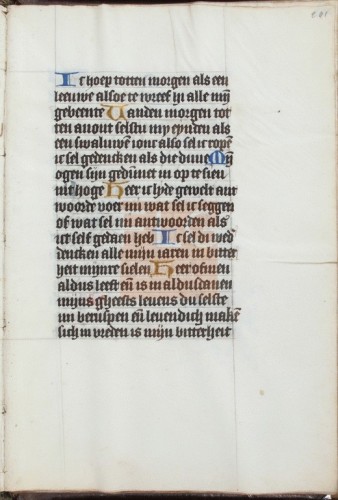 Ic hoep totten morgen als een
leeuwe alsoe te wreef hi alle mijn
gebeente Vanden morgen tot
ten avont selstu my eynden als
een swaluwe ionc also sel ic ropen
ic sel gedencken als die duue Mijn
ogen sijn gedunnet in op te sien
int hoge Heer ic lyde gewelt ant
woorde voer mi wat sel ic seggen
of wat sel mi antwoorden als
ict self gedaen heb Ic sel di wed
dencken alle mijn iaren in bitter
heit mijnre sielen Heer ofmen
aldus leeft en is in aldusdanen
mijns gheests leuens du selste
mi beruspen en leuendich maken
sich in vreden is mijn bitterheit